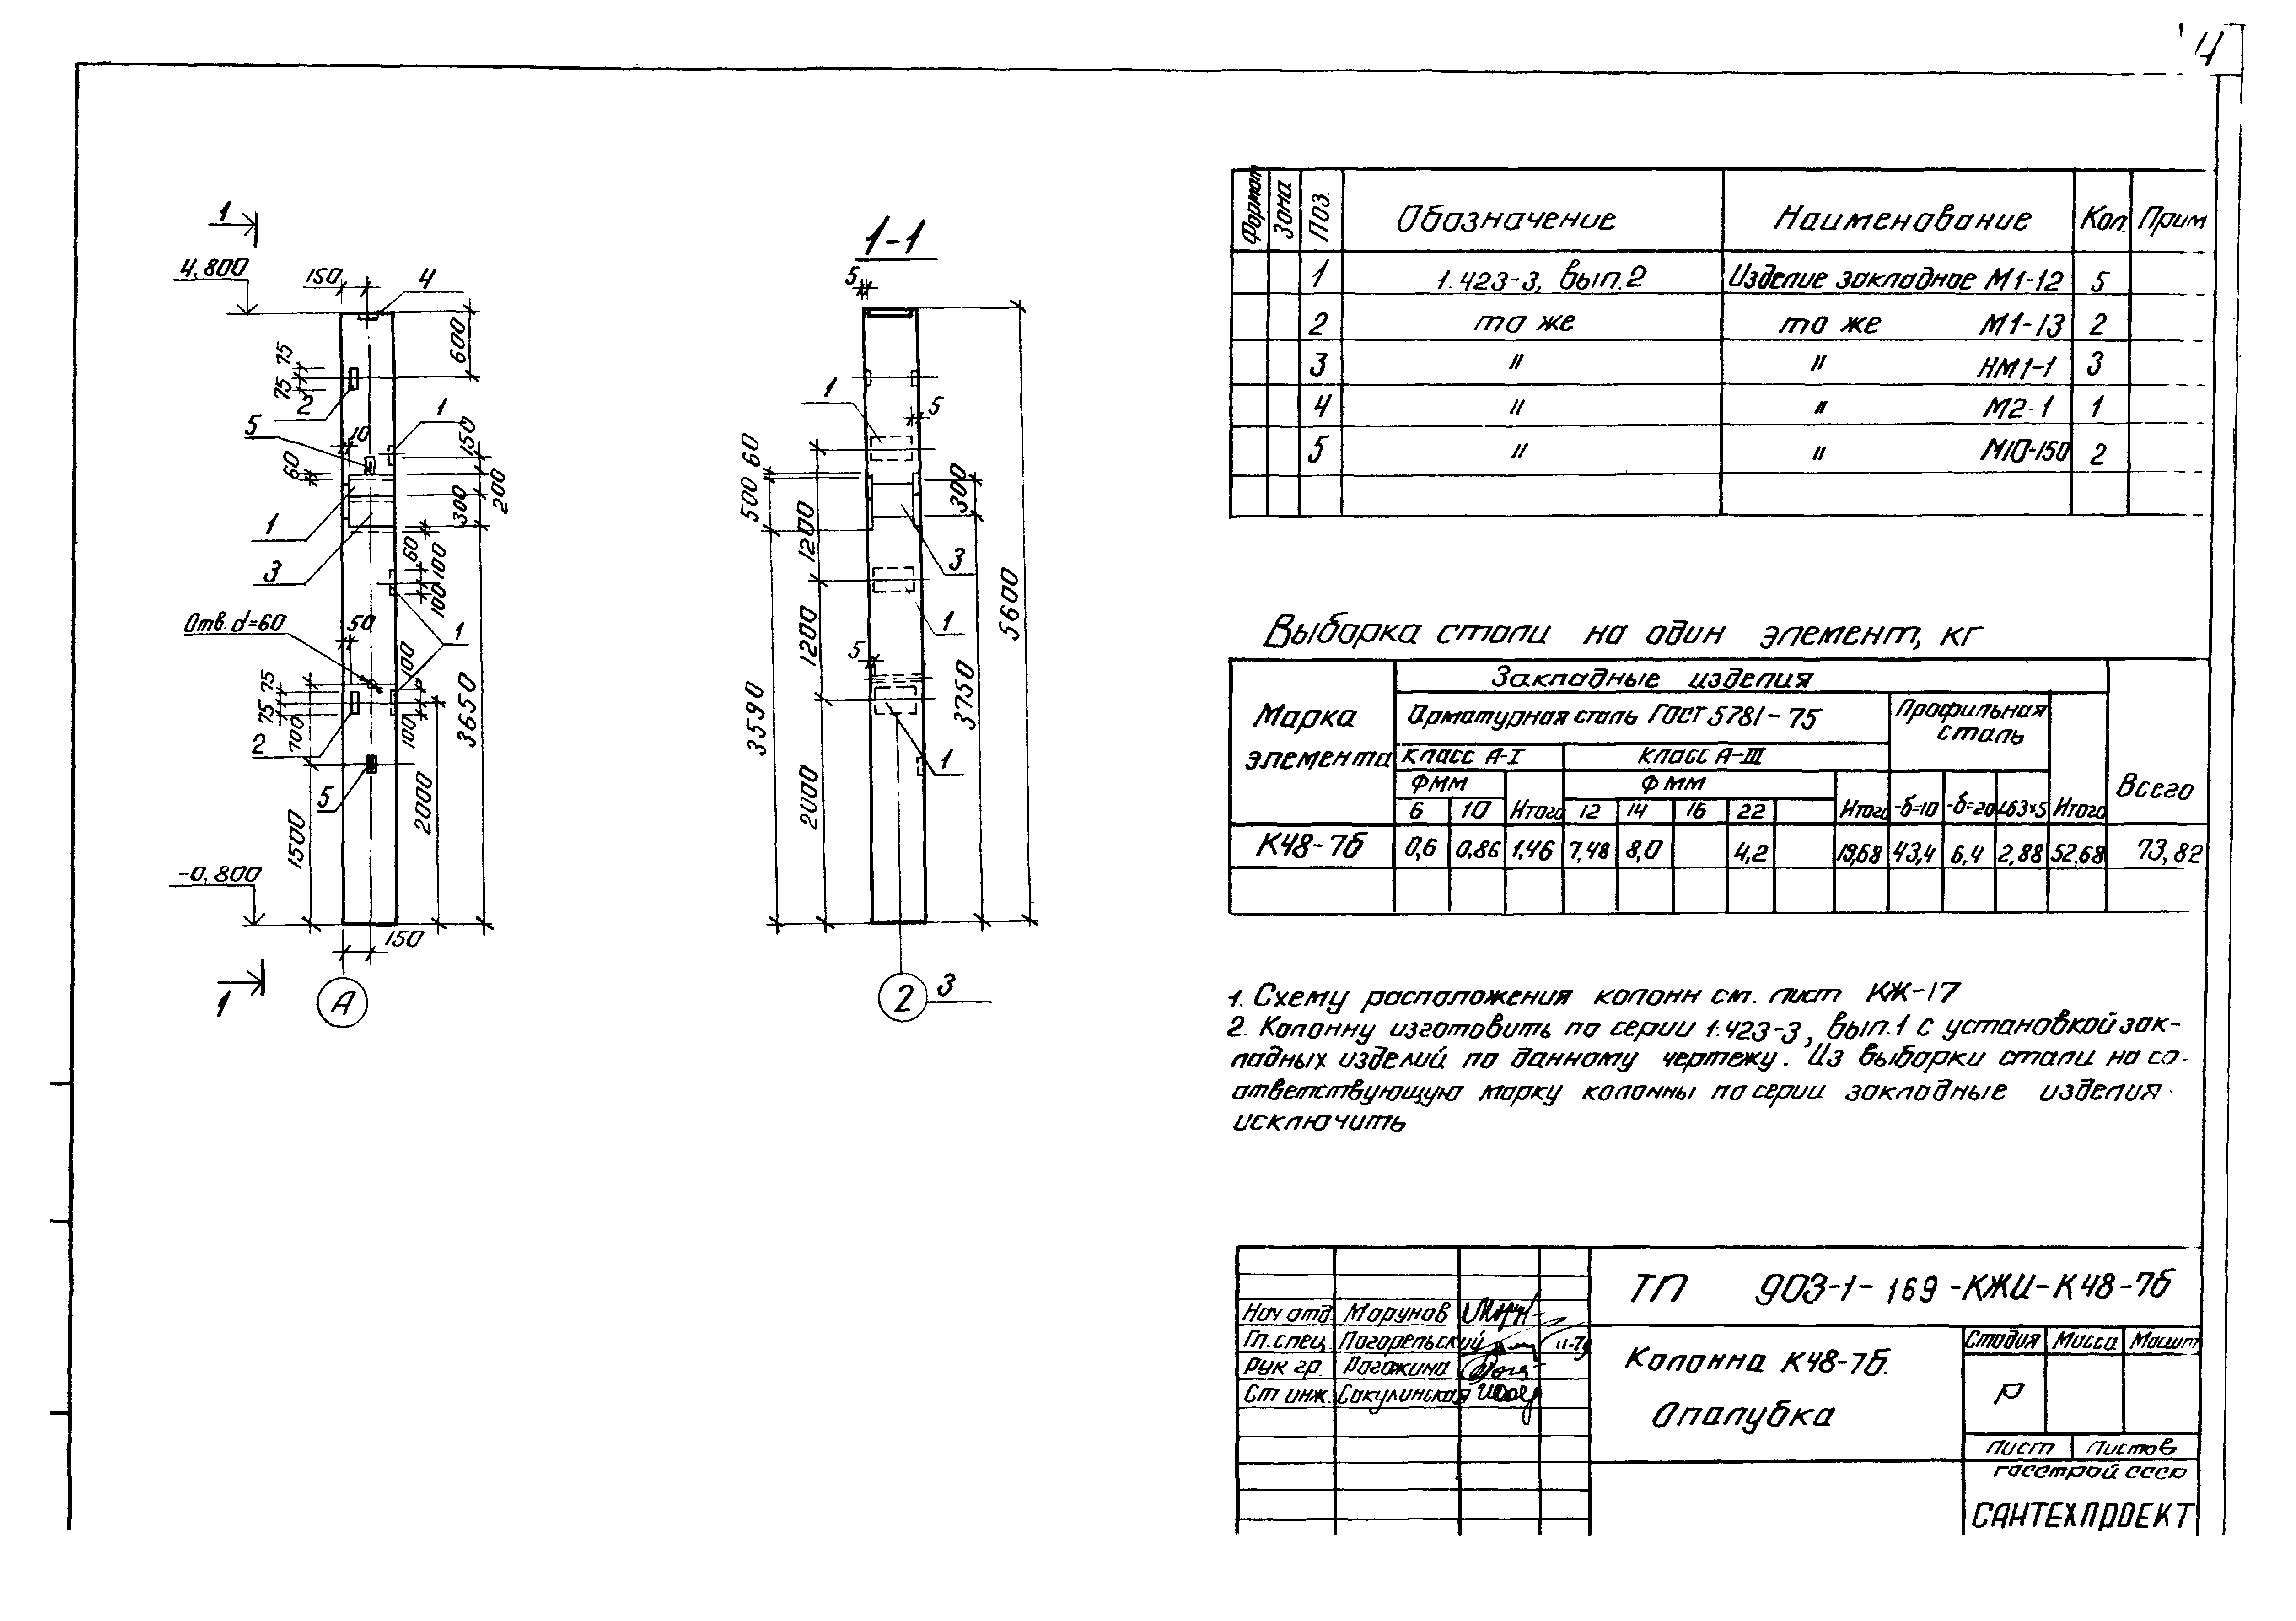 4
1
4,800
150
4
600
75
75
2
5
10
1
150
60
300
200
1
3
60
100
100
Отв. d=60
50
1
100
75
75
700
100
2
5
3650
2000
1500
-0,800
150
1
А
1-1
5
1
5
60
500
1200
300
3
1200
1
5
5600
3590
3750
2000
1
2
3
Формат Зона Поз. Обозначение Наименование Кол. Прим
1 1.423-3, вып.2 Изделие закладное М1-12 5
2 то же то же М1-13 2
3 " " НМ1-1 3
4 " " М2-1 1
5 " " М10-150 2
Выборка стали на один элемент, кг
Марка элемента
Закладные изделия
Всего
Арматурная сталь ГОСТ 5781-75
Профильная сталь
Класс А-I Класс А-III
Ф мм Ф мм
6 10 Итого 12 14 16 22 Итого -δ=10 -δ=20 L63×5 Итого
К48-7б 0,6 0,86 1,46 7,48 8,0 4,2 19,68 43,4 6,4 2,88 52,68 73,82
1. Схему расположения колонн см. лист КЖ-17
2. Колонну изготовить по серии 1.423-3, вып.1 с установкой зак-
ладных изделий по данному чертежу. Из выборки стали на со-
ответствующую марку колонны по серии закладные изделия
исключить
ТП 903-1-169-КЖИ-К48-7б
Нач отд. Марунов
Гл. спец. Погорельский
Рук гр. Рогожина
Ст инж. Сокулинская
Колонна К48-7б.
Опалубка
Стадия Масса Масшт
Р
Лист Листов
Госстрой СССР
САНТЕХПРОЕКТ